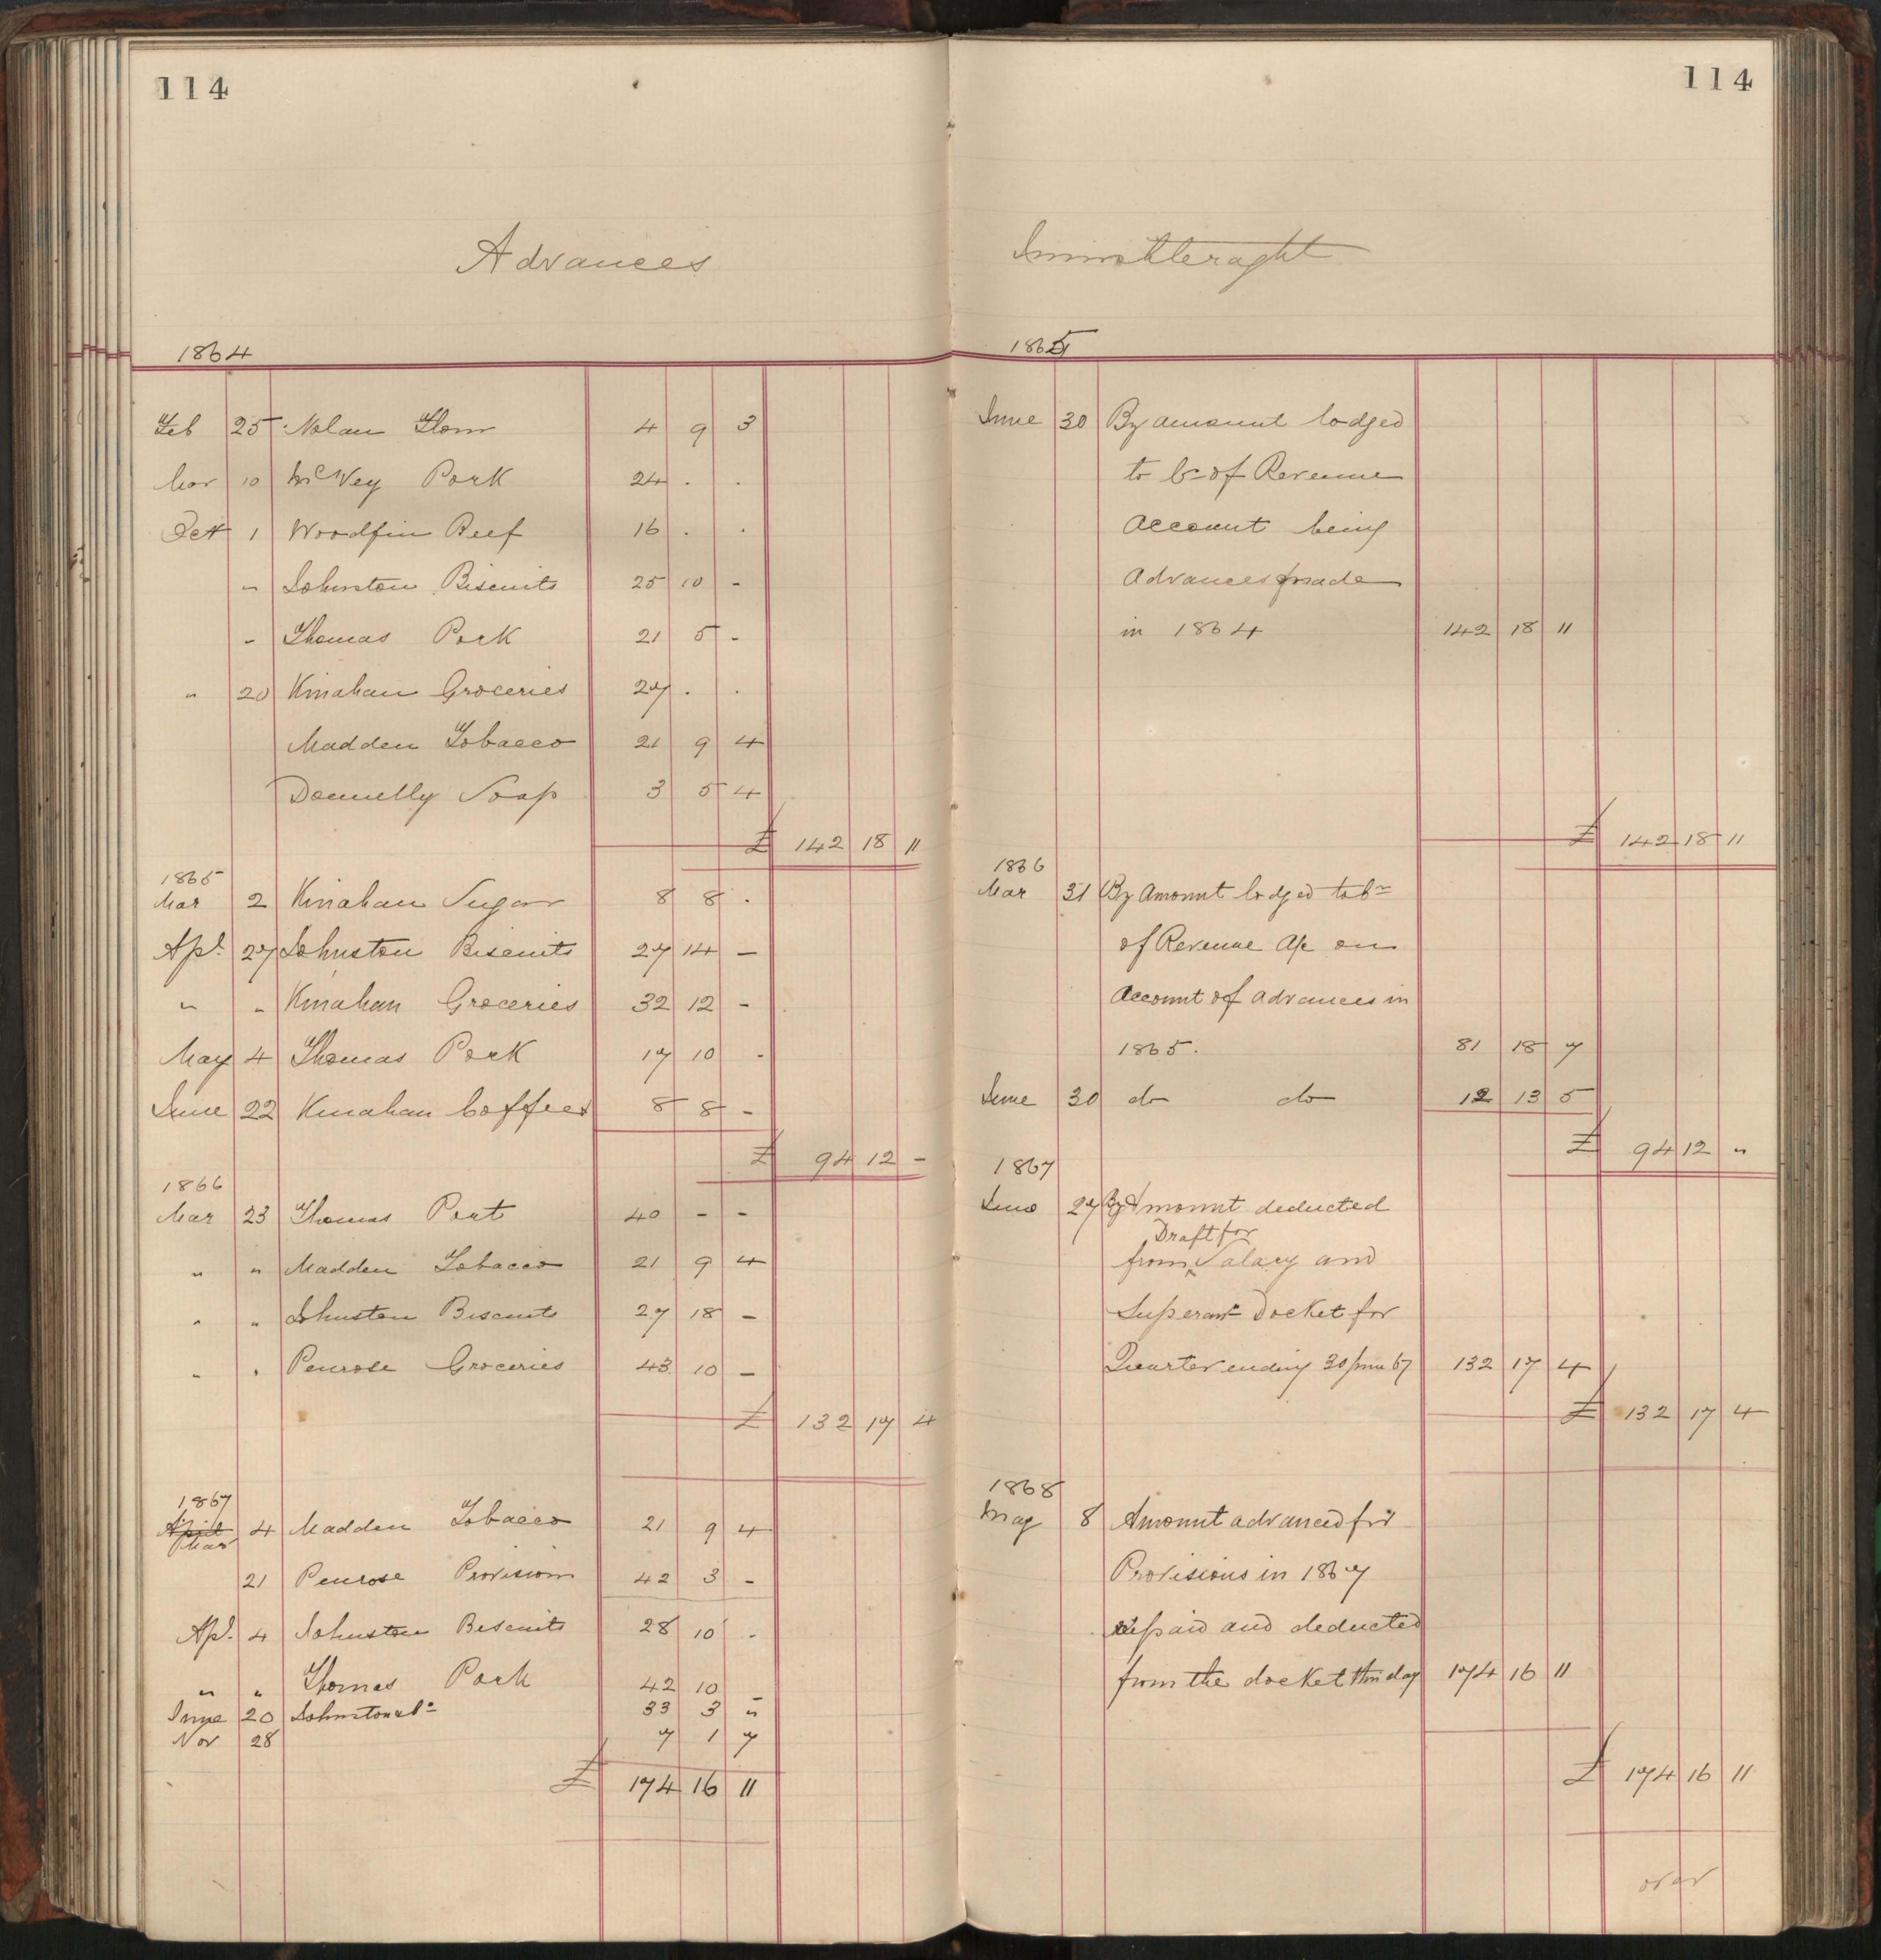 114
Advances
1864
Feb 25 Nolan Flour 4 9 3
Mar 10 McVey Pork 24 . .
Oct 1 Woodfin Beef 16 . .
" Johnston Biscuits 25 10 -
" Thomas Pork 21 5 -
" 20 Kinahan Groceries 27 . .
Madden Tobacco 21 9 4
Donnelly Soap 3 5 4
£ 142 18 11
1865
Mar 2 Kinahan Sugar 8 8 .
Apl. 27 Johnston Biscuits 27 14 -
" " Kinahan Groceries 32 12 -
May 4 Thomas Pork 17 10 -
June 22 Kinahan Coffee 8 8 -
£ 94 12 -
1866
Mar 23 Thomas 40 - -
" " Madden Tobacco 21 9 4
" " Johnston Biscuits 27 18 -
" " Penrose Groceries 43 10 -
£ 132 17 4
1867
April Mar 4 Madden Tobacco 21 9 4
21 Penrose Provisions 42 3 -
Apl. 4 Johnston Biscuits 28 10 -
" " Thomas Pork 42 10 -
June 20 Johnston & Co 33 3 "
Nov 28 7 1 7
£ 174 16 11
114
Innistteraght
1865
June 30 By amount lodged
to Cr of Revenue
Account being
Advances made
in 1864 142 18 11
£ 142 18 11
1866
Mar 31 By Amount lodged to Cr
of Revenue A/c on
Account of advances in
1865. 81 18 7
June 30 do do 12 13 5
£ 94 12 "
1867
June 27 By Amount deducted
Draft for
from Salary and
Superant Docket for
Quarter ending 30 June 67 132 17 4
£ 132 17 4
1868
May 8 Amount advanced for
Provisions in 1867
repaid and deducted
from the docket this day 174 16 11
£ 174 16 11
over